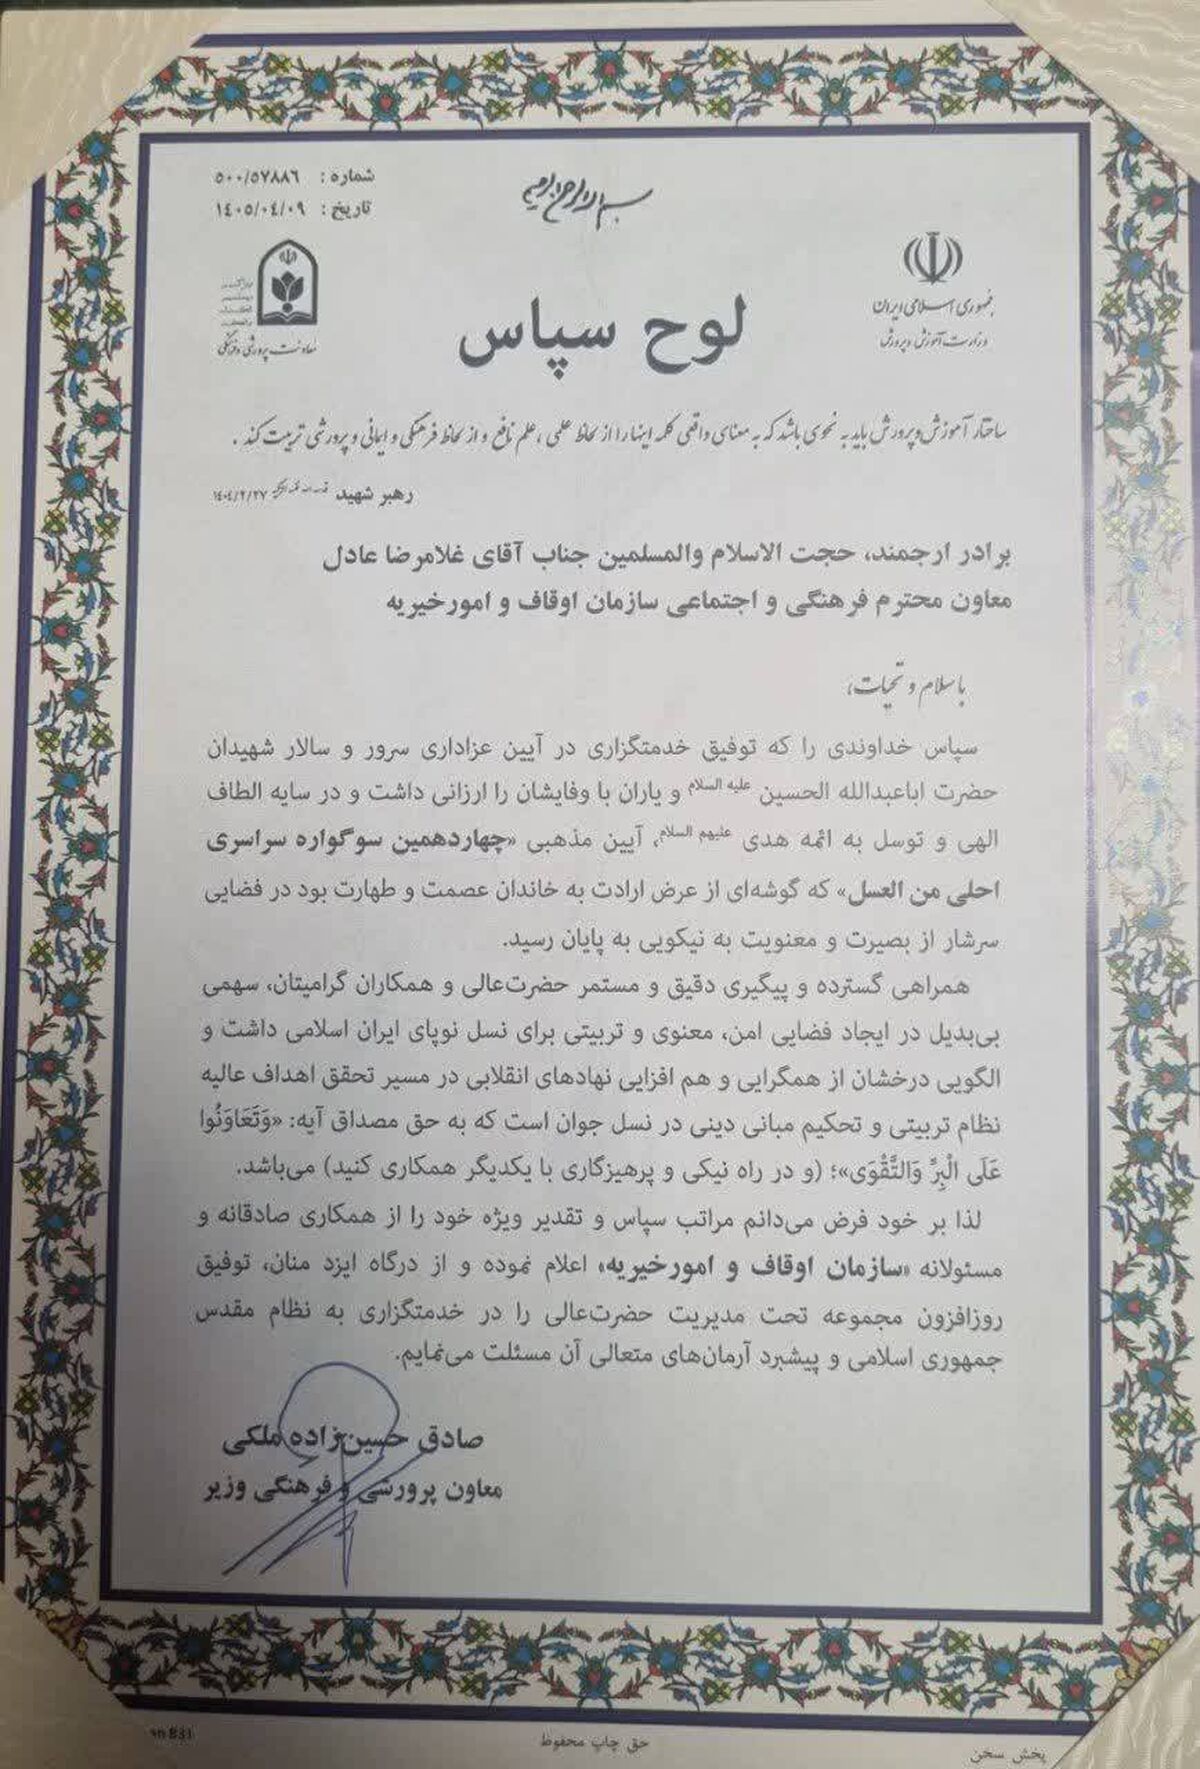 بسم الله الرحمن الرحیم
شماره : ۵۰۰/۵۷۸۸۶
تاریخ : ۱٤۰۵/۰٤/۰۹
جمهوری اسلامی ایران
وزارت آموزش و پرورش
معاونت پرورشی و فرهنگی
لوح سپاس
ساختار آموزش و پرورش باید به نحوی باشد که به معنای واقعی کلمه اینها را از لحاظ علمی ، علم نافع و از لحاظ فرهنگی و ایمانی و پرورشی تربیت کند .
رهبر شهید ۱٤۰٤/۲/۲۷
برادر ارجمند، حجت الاسلام والمسلمین جناب آقای غلامرضا عادل
معاون محترم فرهنگی و اجتماعی سازمان اوقاف و امورخیریه
با سلام و تحیات،
سپاس خداوندی را که توفیق خدمتگزاری در آیین عزاداری سرور و سالار شهیدان
حضرت اباعبدالله الحسین علیه السلام و یاران با وفایشان را ارزانی داشت و در سایه الطاف
الهی و توسل به ائمه هدی علیهم السلام، آیین مذهبی «چهاردهمین سوگواره سراسری
احلی من العسل» که گوشه‌ای از عرض ارادت به خاندان عصمت و طهارت بود در فضایی
سرشار از بصیرت و معنویت به نیکویی به پایان رسید.
همراهی گسترده و پیگیری دقیق و مستمر حضرت‌عالی و همکاران گرامیتان، سهمی
بی‌بدیل در ایجاد فضایی امن، معنوی و تربیتی برای نسل نوپای ایران اسلامی داشت و
الگویی درخشان از همگرایی و هم افزایی نهادهای انقلابی در مسیر تحقق اهداف عالیه
نظام تربیتی و تحکیم مبانی دینی در نسل جوان است که به حق مصداق آیه: «وَتَعَاوَنُوا
عَلَى الْبِرِّ وَالتَّقْوَى»؛ (و در راه نیکی و پرهیزگاری با یکدیگر همکاری کنید) می‌باشد.
لذا بر خود فرض می‌دانم مراتب سپاس و تقدیر ویژه خود را از همکاری صادقانه و
مسئولانه «سازمان اوقاف و امورخیریه» اعلام نموده و از درگاه ایزد منان، توفیق
روزافزون مجموعه تحت مدیریت حضرت‌عالی را در خدمتگزاری به نظام مقدس
جمهوری اسلامی و پیشبرد آرمان‌های متعالی آن مسئلت می‌نمایم.
صادق حسین‌زاده ملکی
معاون پرورشی و فرهنگی وزیر
پخش سخن
حق چاپ محفوظ
831